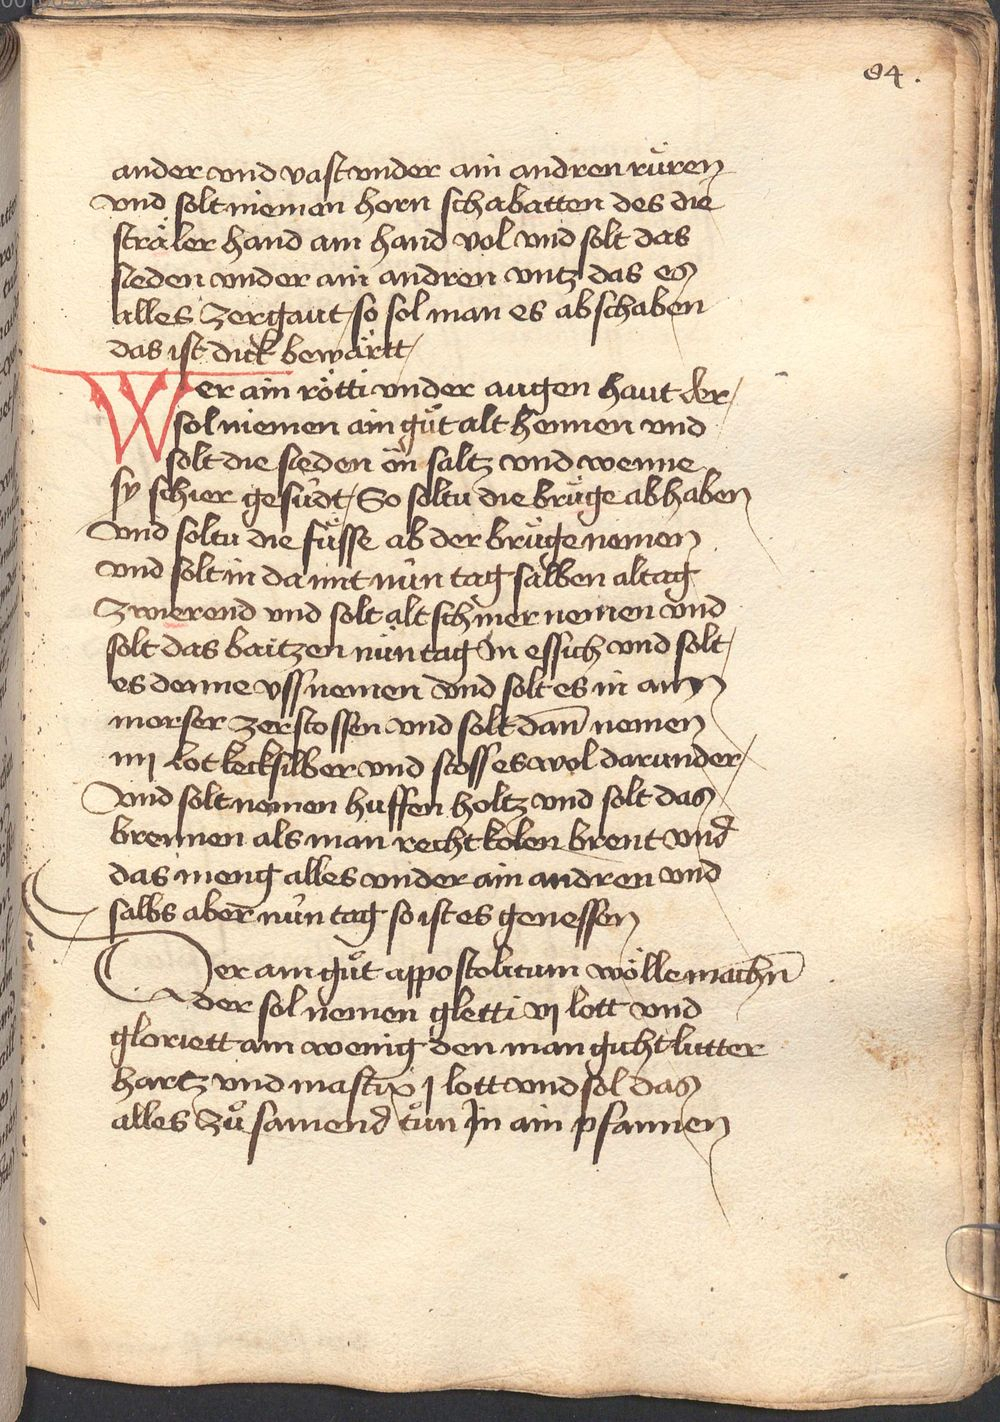 84.
ander vnd vast vnder ain andren rüren
vnd solt niemen horn schabatten des die
sträler hand ain hand vol vnd solt das
sieden vnder ain andren vntz das es
alles zergaut / so sol man es abschaben
das ist dick bewärtt /
Wer ain rötti vnder augen haut der /
sol niemen ain gůt alt hennen vnd
solt die sieden ön saltz vnd wenne
sy schier gesüdt / So soltu die brüge abhaben
vnd soltu die füsse ab der brüge nemen
vnd solt in da mit nün tag salben altag
zwierend vnd solt alt schmer nemen vnd
solt das baitzen nün tag In essich vnd solt /
es denne vss nemen vnd solt es in ain
morser zerstossen vnd solt dan̄ nemen
iiij lot kecksilber vnd stoss es wol darunder /
vnd solt nemen huffen holtz vnd solt das
brennen als man recht kolen brent vnd
das meng alles vnder ain andren vnd
salbs aber nün tag so ist es genessen
Der ain gůt appostolicum wölle machn̄
der sol nemen gletti vj lott vnd
gloriett ain wenig den man gicht lutter
hartz vnd mastix j lott vnd sol das
alles zů samend tůn In ain pfannen